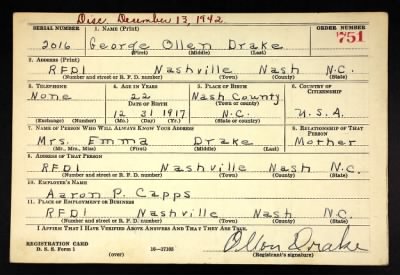 Disc. December 13, 1942.
SERIAL NUMBER 1. NAME (Print) ORDER NUMBER
2016 George Ollen Drake 751
(First) (Middle) (Last)
2. ADDRESS (Print)
RFD1 Nashville Nash N.C.
(Number and street or R. F. D. number) (Town) (County) (State)
3. TELEPHONE 4. AGE IN YEARS 5. PLACE OF BIRTH 6. COUNTRY OF CITIZENSHIP
None 22 Nash County
DATE OF BIRTH (Town or county)
12 31 1917 N.C. U.S.A.
(Exchange) (No.) (Mo.) (Day) (Yr.) (State or country)
7. NAME OF PERSON WHO WILL ALWAYS KNOW YOUR ADDRESS 8. RELATIONSHIP OF THAT PERSON
Mrs. Emma Drake Mother
(Mr., Mrs., Miss) (First) (Middle) (Last)
9. ADDRESS OF THAT PERSON
RFD1 Nashville Nash N.C.
(Number and street or R. F. D. number) (Town) (County) (State)
10. EMPLOYER'S NAME
Aaron P. Capps
11. PLACE OF EMPLOYMENT OR BUSINESS
RFD1 Nashville Nash N.C.
(Number and street or R. F. D. number) (Town) (County) (State)
I AFFIRM THAT I HAVE VERIFIED ABOVE ANSWERS AND THAT THEY ARE TRUE.
REGISTRATION CARD
D. S. S. Form 1 (over) 16-17105 Ollen Drake
(Registrant's signature)